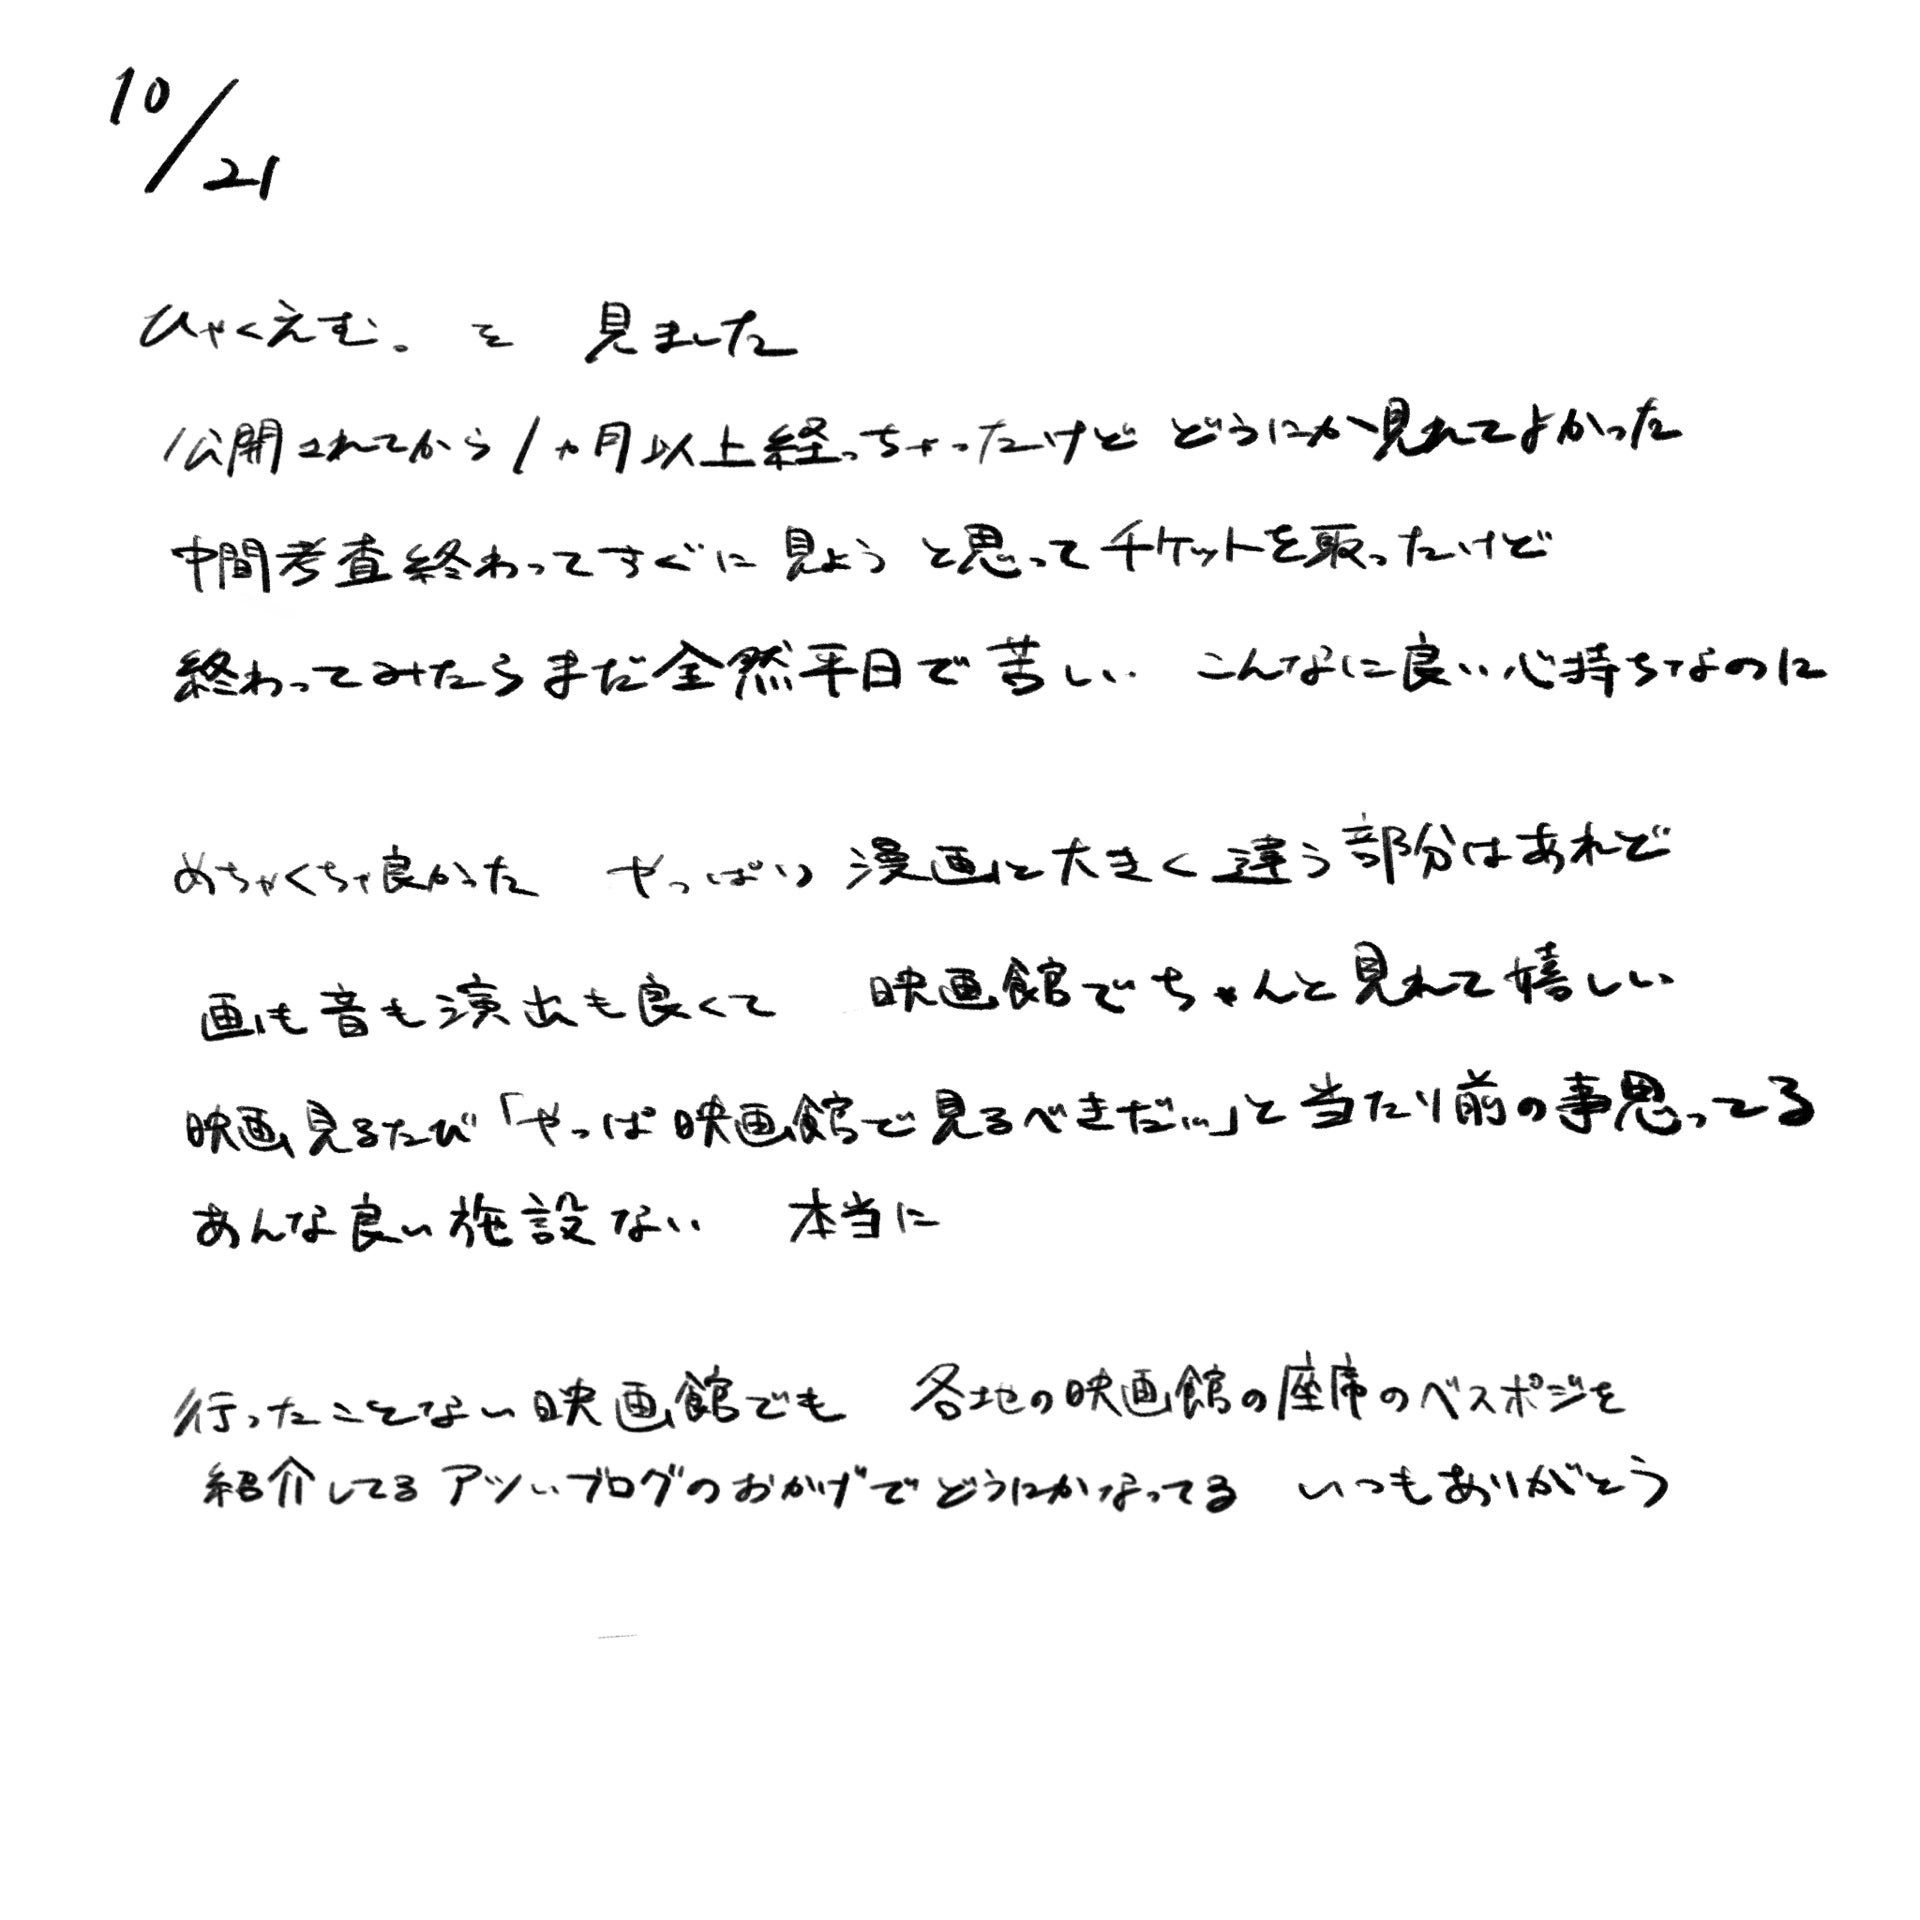 10/21
ひゃくえむ。を 見ました
公開されてから1ヶ月以上経っちゃったけど どうにか見れてよかった
中間考査終わってすぐに見ようと思ってチケットを取ったけど
終わってみたらまだ全然平日で苦しい こんなに良い心持ちなのに
めちゃくちゃ良かった やっぱり漫画と大きく違う部分はあれど
画も音も演出も良くて 映画館でちゃんと見れて嬉しい
映画見るたび「やっぱ映画館で見るべきだ…」と当たり前の事思ってる
あんな良い施設ない 本当に
行ったことない映画館でも 各地の映画館の座席のベスポジを
紹介してるアツいブログのおかげでどうにかなってる いつもありがとう